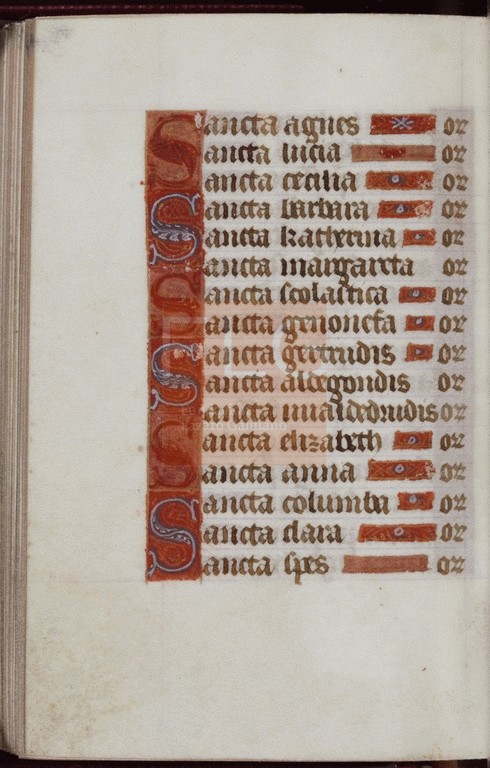 Sancta agnes or
Sancta lucia or
Sancta cecilia or
Sancta barbara or
Sancta katherina or
Sancta margareta or
Sancta scolastica or
Sancta genonefa or
Sancta gertrudis or
Sancta aldegondis or
Sancta or
Sancta elizabeth or
Sancta anna or
Sancta columba or
Sancta clara or
Sancta spes or